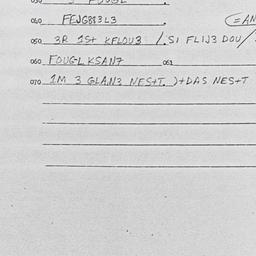 030 3 FOUGL
040 FEJG883L3 (=AN
050 3R 1S+ KFLOU3 /.SI FLIJ3 DOU/.
060 FOUGL KSAN7 061
070 1M 3 GLAN3 NES+T. )+DAS NES+T